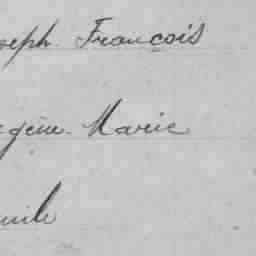 oseph Francois
gène Marie
mile